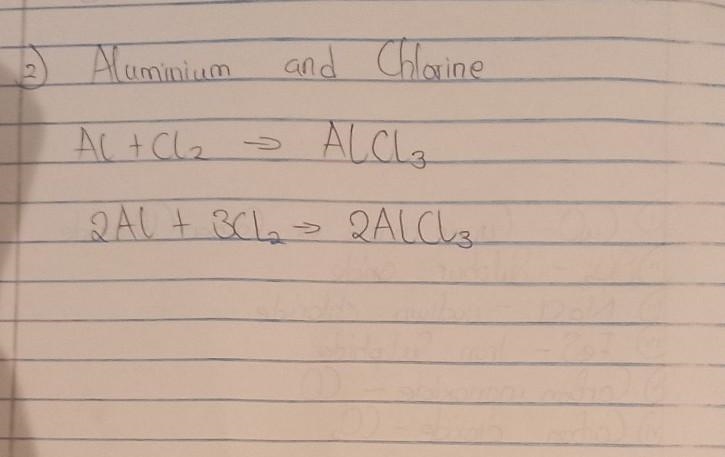 2) Aluminium and Chlorine
Al + Cl₂ ⇒ AlCl₃
2Al + 3Cl₂ ⇒ 2AlCl₃